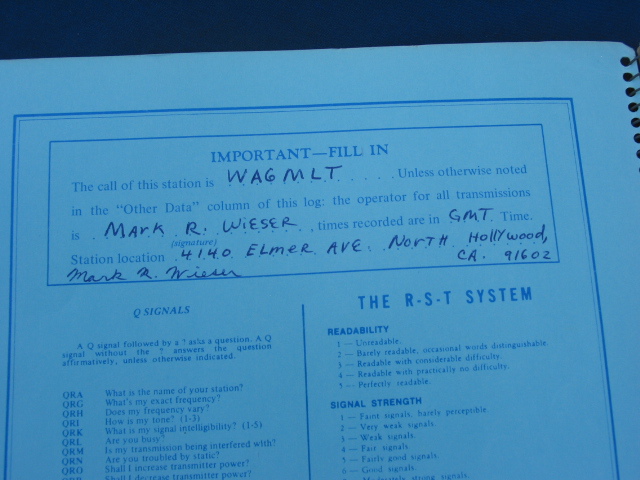 IMPORTANT—FILL IN
The call of this station is WA6MLT. Unless otherwise noted
in the "Other Data" column of this log: the operator for all transmissions
is MARK R. WIESER, times recorded are in GMT Time.
(signature)
Station location 4140 ELMER AVE. NORTH HOLLYWOOD,
Mark R. Wieser CA. 91602
Q SIGNALS
A Q signal followed by a ? asks a question. A Q
signal without the ? answers the question
affirmatively, unless otherwise indicated.
QRA What is the name of your station?
QRG What's my exact frequency?
QRH Does my frequency vary?
QRI How is my tone? (1-3)
QRK What is my signal intelligibility? (1-5)
QRL Are you busy?
QRM Is my transmission being interfered with?
QRN Are you troubled by static?
QRO Shall I increase transmitter power?
QRP Shall I decrease transmitter power?
THE R-S-T SYSTEM
READABILITY
1 — Unreadable.
2 — Barely readable, occasional words distinguishable.
3 — Readable with considerable difficulty.
4 — Readable with practically no difficulty.
5 — Perfectly readable.
SIGNAL STRENGTH
1 — Faint signals, barely perceptible.
2 — Very weak signals.
3 — Weak signals.
4 — Fair signals.
5 — Fairly good signals.
6 — Good signals.
7 — Moderately strong signals.